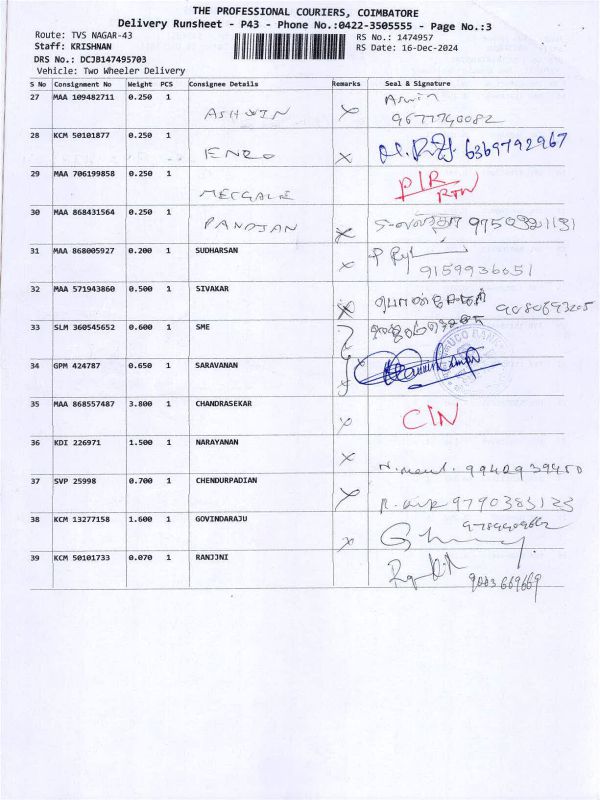 THE PROFESSIONAL COURIERS, COIMBATORE
Delivery Runsheet - P43 - Phone No.:0422-3505555 - Page No.:3
Route: TVS NAGAR-43 RS No.: 1474957
Staff: KRISHNAN RS Date: 16-Dec-2024
DRS No.: DCJB147495703
Vehicle: Two Wheeler Delivery
S No Consignment No Weight PCS Consignee Details Remarks Seal & Signature
27 MAA 109482711 0.250 1 ASHWIN X Aswin
9677740082
28 KCM 50101877 0.250 1 ENRO X 6369792967
29 MAA 706199858 0.250 1 P/R
RTN
30 MAA 868431564 0.250 1 PANDIAN X
31 MAA 868005927 0.200 1 SUDHARSAN X
9159936051
32 MAA 571943860 0.500 1 SIVAKAR X
33 SLM 360545652 0.600 1 SME
34 GPM 424787 0.650 1 SARAVANAN
35 MAA 868557487 3.800 1 CHANDRASEKAR X C/N
36 KDI 226971 1.500 1 NARAYANAN X
37 SVP 25998 0.700 1 CHENDURPADIAN X 9790383123
38 KCM 13277158 1.600 1 GOVINDARAJU X
39 KCM 50101733 0.070 1 RANJJNI